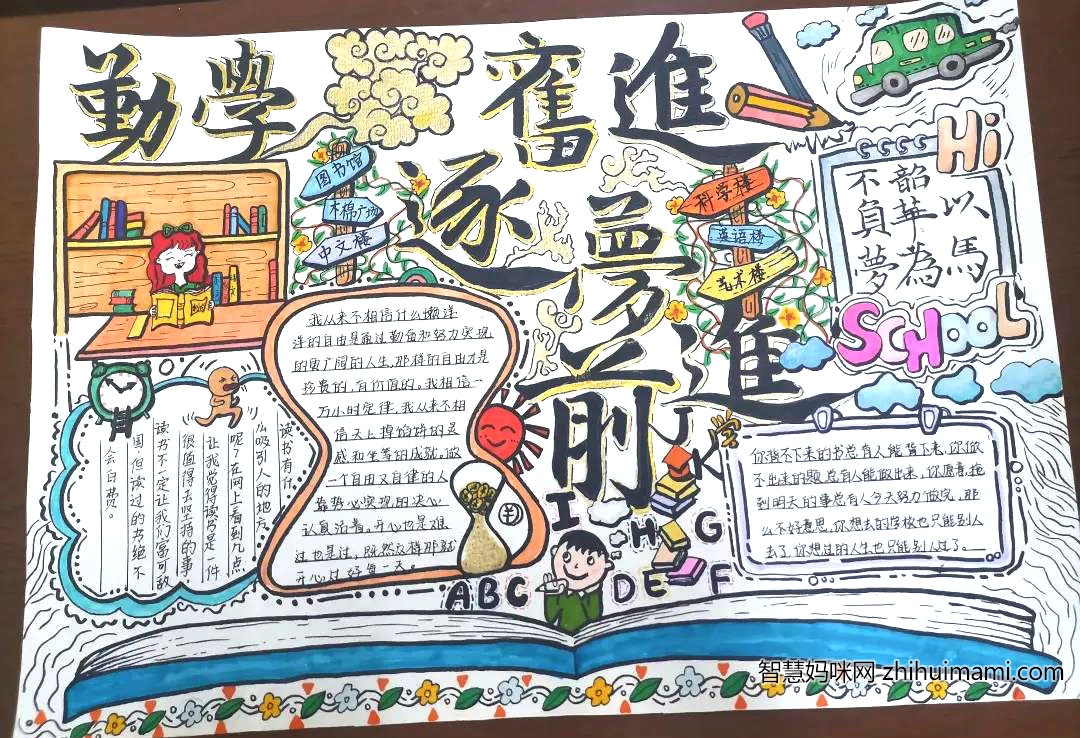 勤學 奮進
逐夢前進
图书馆
木棉广场
中文楼
科学楼
英语楼
艺术楼
Hi
以馬
韶華為
不負夢
SCHOOL
我从来不相信什么懒洋
洋的自由是通过勤奋和努力实现
的更广阔的人生,那样的自由才是
珍贵的,有价值的。我相信一
万小时定律,我从来不相
信天上掉馅饼的灵
感和坐等的成就,做
一个自由又自律的人
靠势必实现的决心
认真活着,开心也是难
过也是过,既然这样那就
开心过好每一天。
读书有什
么吸引人的地方
呢?在网上看到几点
让我觉得读书是一件
很值得去坚持的事
读书不一定让我们富可敌
国,但读过的书绝不
会白费。
你背不下来的书总有人能背下来,你做
不出来的题总有人能做出来,你愿意拖
到明天的事总有人今天努力做完,那
么不好意思,你想去的学校也只能别人
去了,你想过的人生也只能别人过了。
J
K
I
H
G
ABC
DE
F
智慧妈咪网-zhihuimami.com